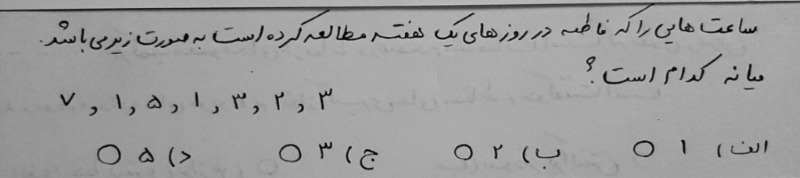 ساعت هایی را که فاطمه در روز های یک هفته مطالعه کرده است به صورت زیر می باشد.
میانه کدام است؟
۷ , ۱ , ۵ , ۱ , ۳ , ۲ , ۳
الف) ۱ ○ ب) ۲ ○ ج) ۳ ○ د) ۵ ○